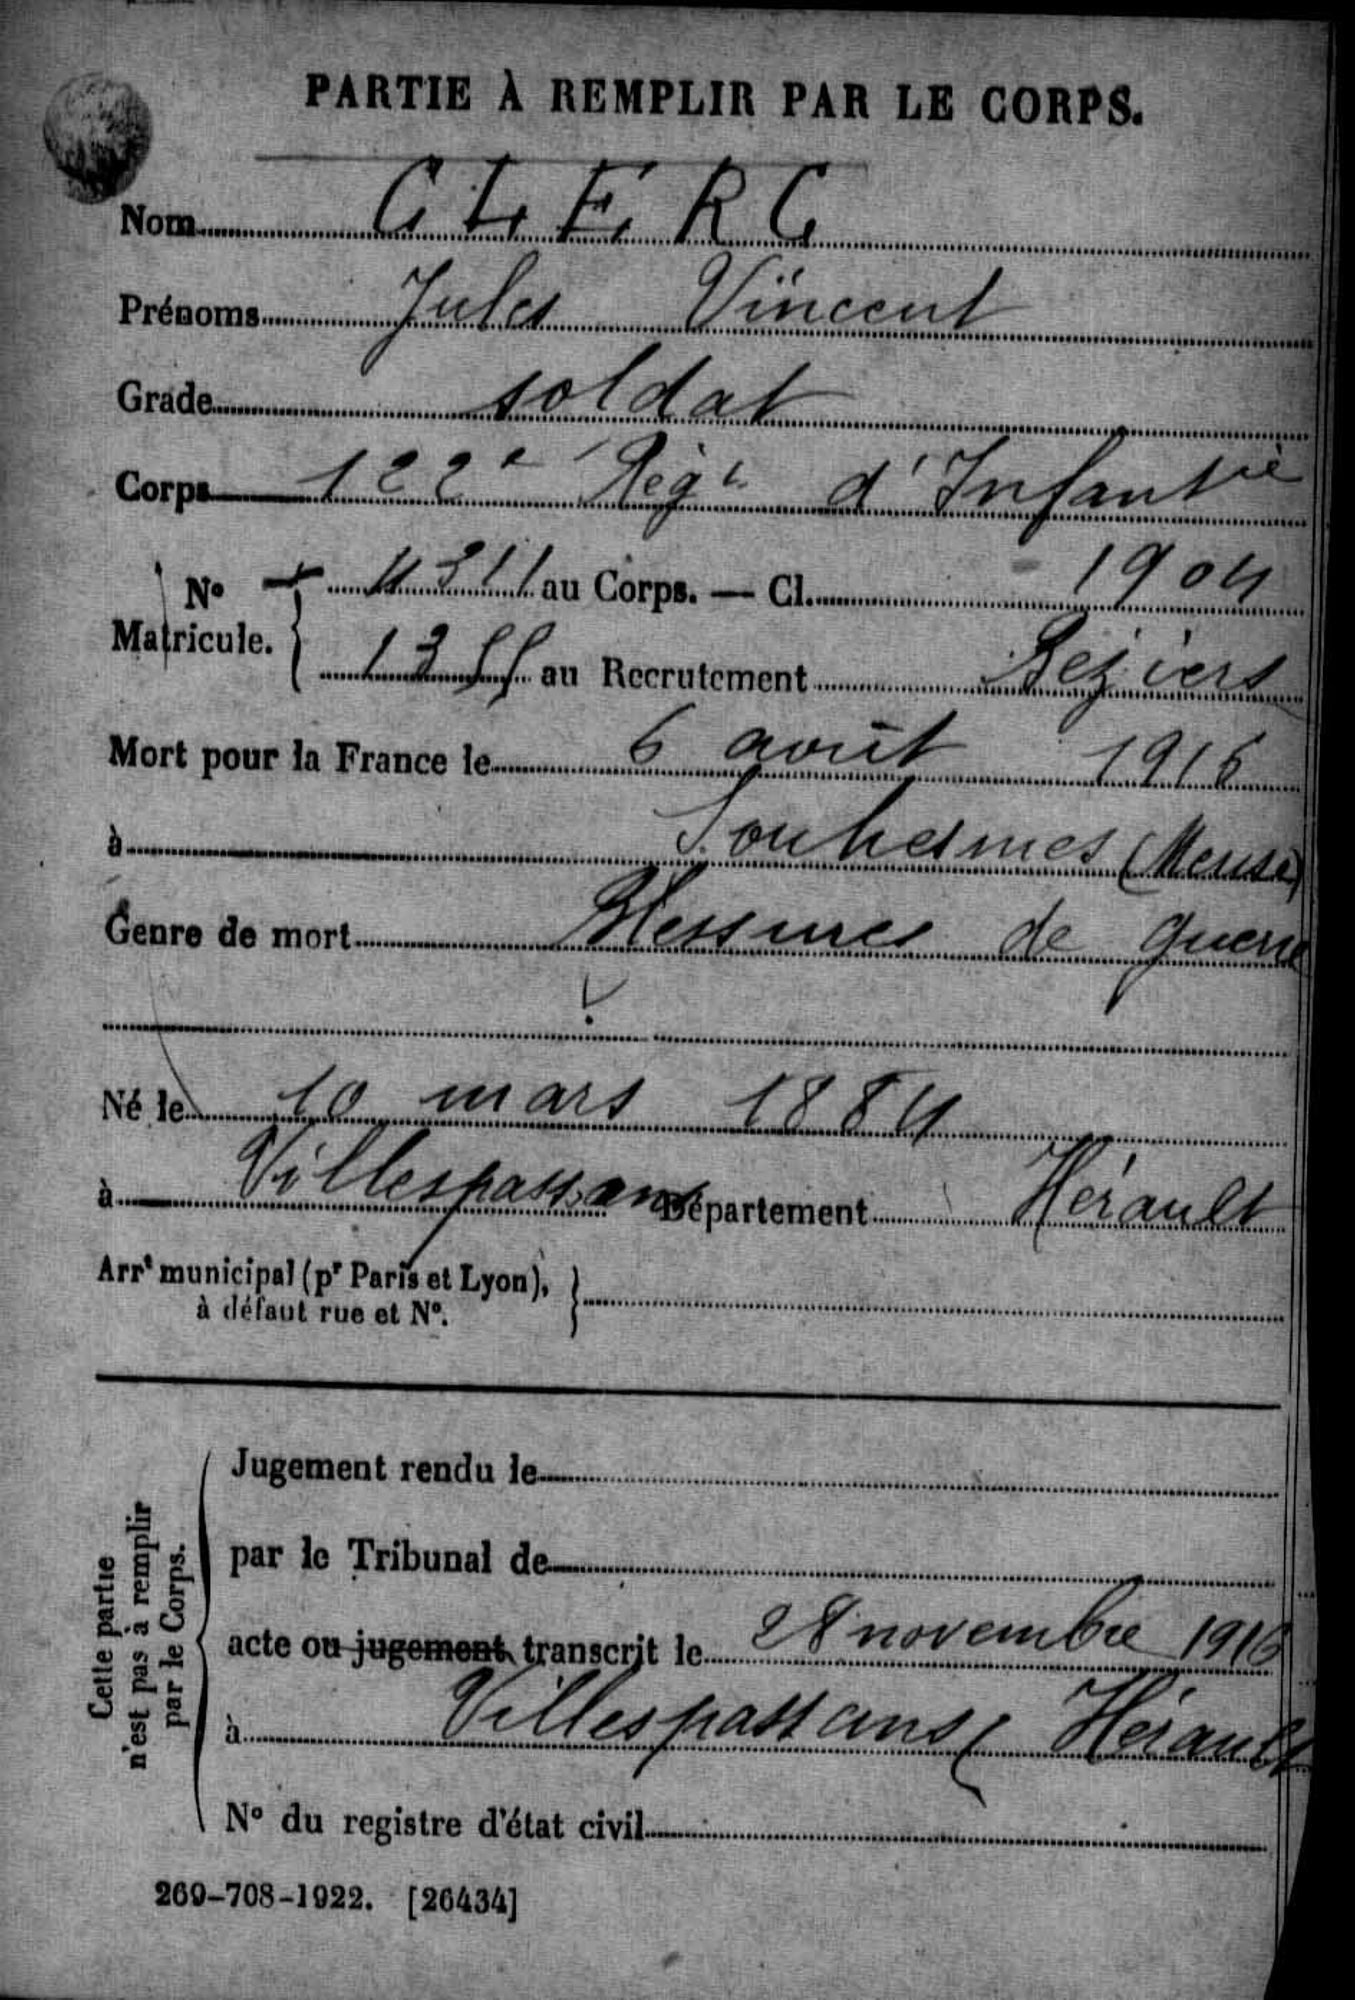 PARTIE À REMPLIR PAR LE CORPS.
Nom CLERC
Prénoms Jules Vincent
Grade soldat
Corps 122e Régt d'Infantie
No Matricule. 4311 au Corps. — Cl. 1904
1355 au Recrutement Béziers
Mort pour la France le 6 août 1916
à Souhesmes (Meuse)
Genre de mort Blessures de guerre
Né le 10 mars 1884
à Villespassans Département Hérault
Arrt municipal (pr Paris et Lyon),
à défaut rue et No.
Cette partie
n'est pas à remplir
par le Corps.
Jugement rendu le
par le Tribunal de
acte ou jugement transcrit le 28 novembre 1916
à Villespassans, Hérault
No du registre d'état civil
269-708-1922. [26434]